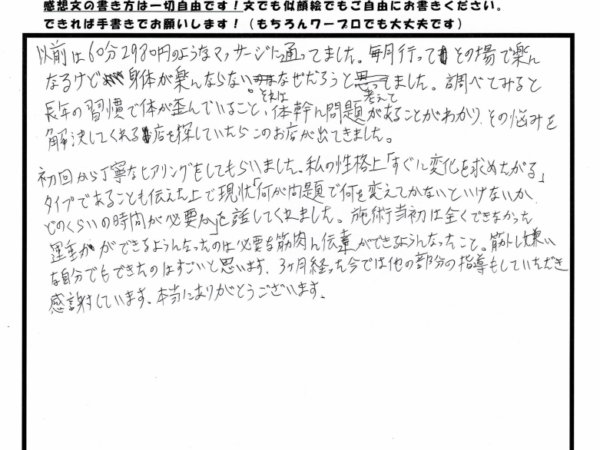 感想文の書き方は一切自由です！文でも似顔絵でもご自由にお書きください。
できれば手書きでお願いします！（もちろんワープロでも大丈夫です）
以前は60分2980円のようなマッサージに通ってました。毎月行ってその場で楽ん
なるけど身体が楽んならないなぜだろうと思ってました。調べてみると
それは 考えて
長年の習慣で体が歪んでいること、体幹ん問題があることがわかり、その悩みを
解決してくれるお店を探していたらこのお店が出てきました。
初回から丁寧なヒアリングをしてもらいました。私の性格上「すぐに変化を求めたがる」
タイプであることも伝えた上で現状「何が問題で何を変えてかないといけないか
どのくらいの時間が必要か」を話してくれました。施術当初は全くできなかった
運動ができるようんなったのは必要な筋肉ん伝達ができるようんなったこと。筋トレ嫌い
な自分でもできたのはすごいと思います。3ヶ月経った今では他の部分の指導もしていただき
感謝しています。本当にありがとうございます。